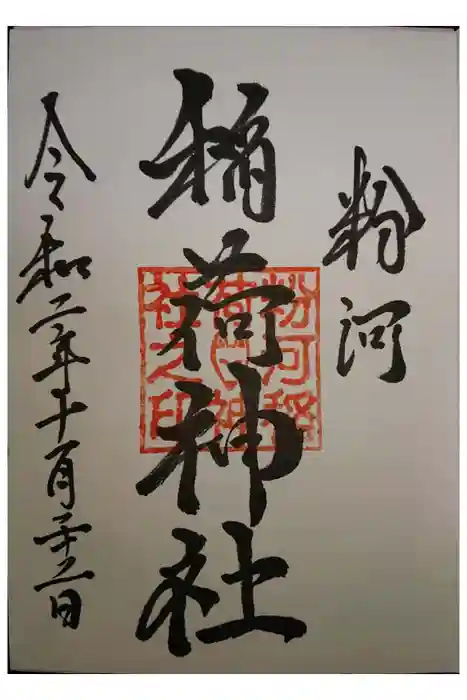 粉河
稲荷神社
令和二年十一月廿二日
粉河稲
荷神
社之印